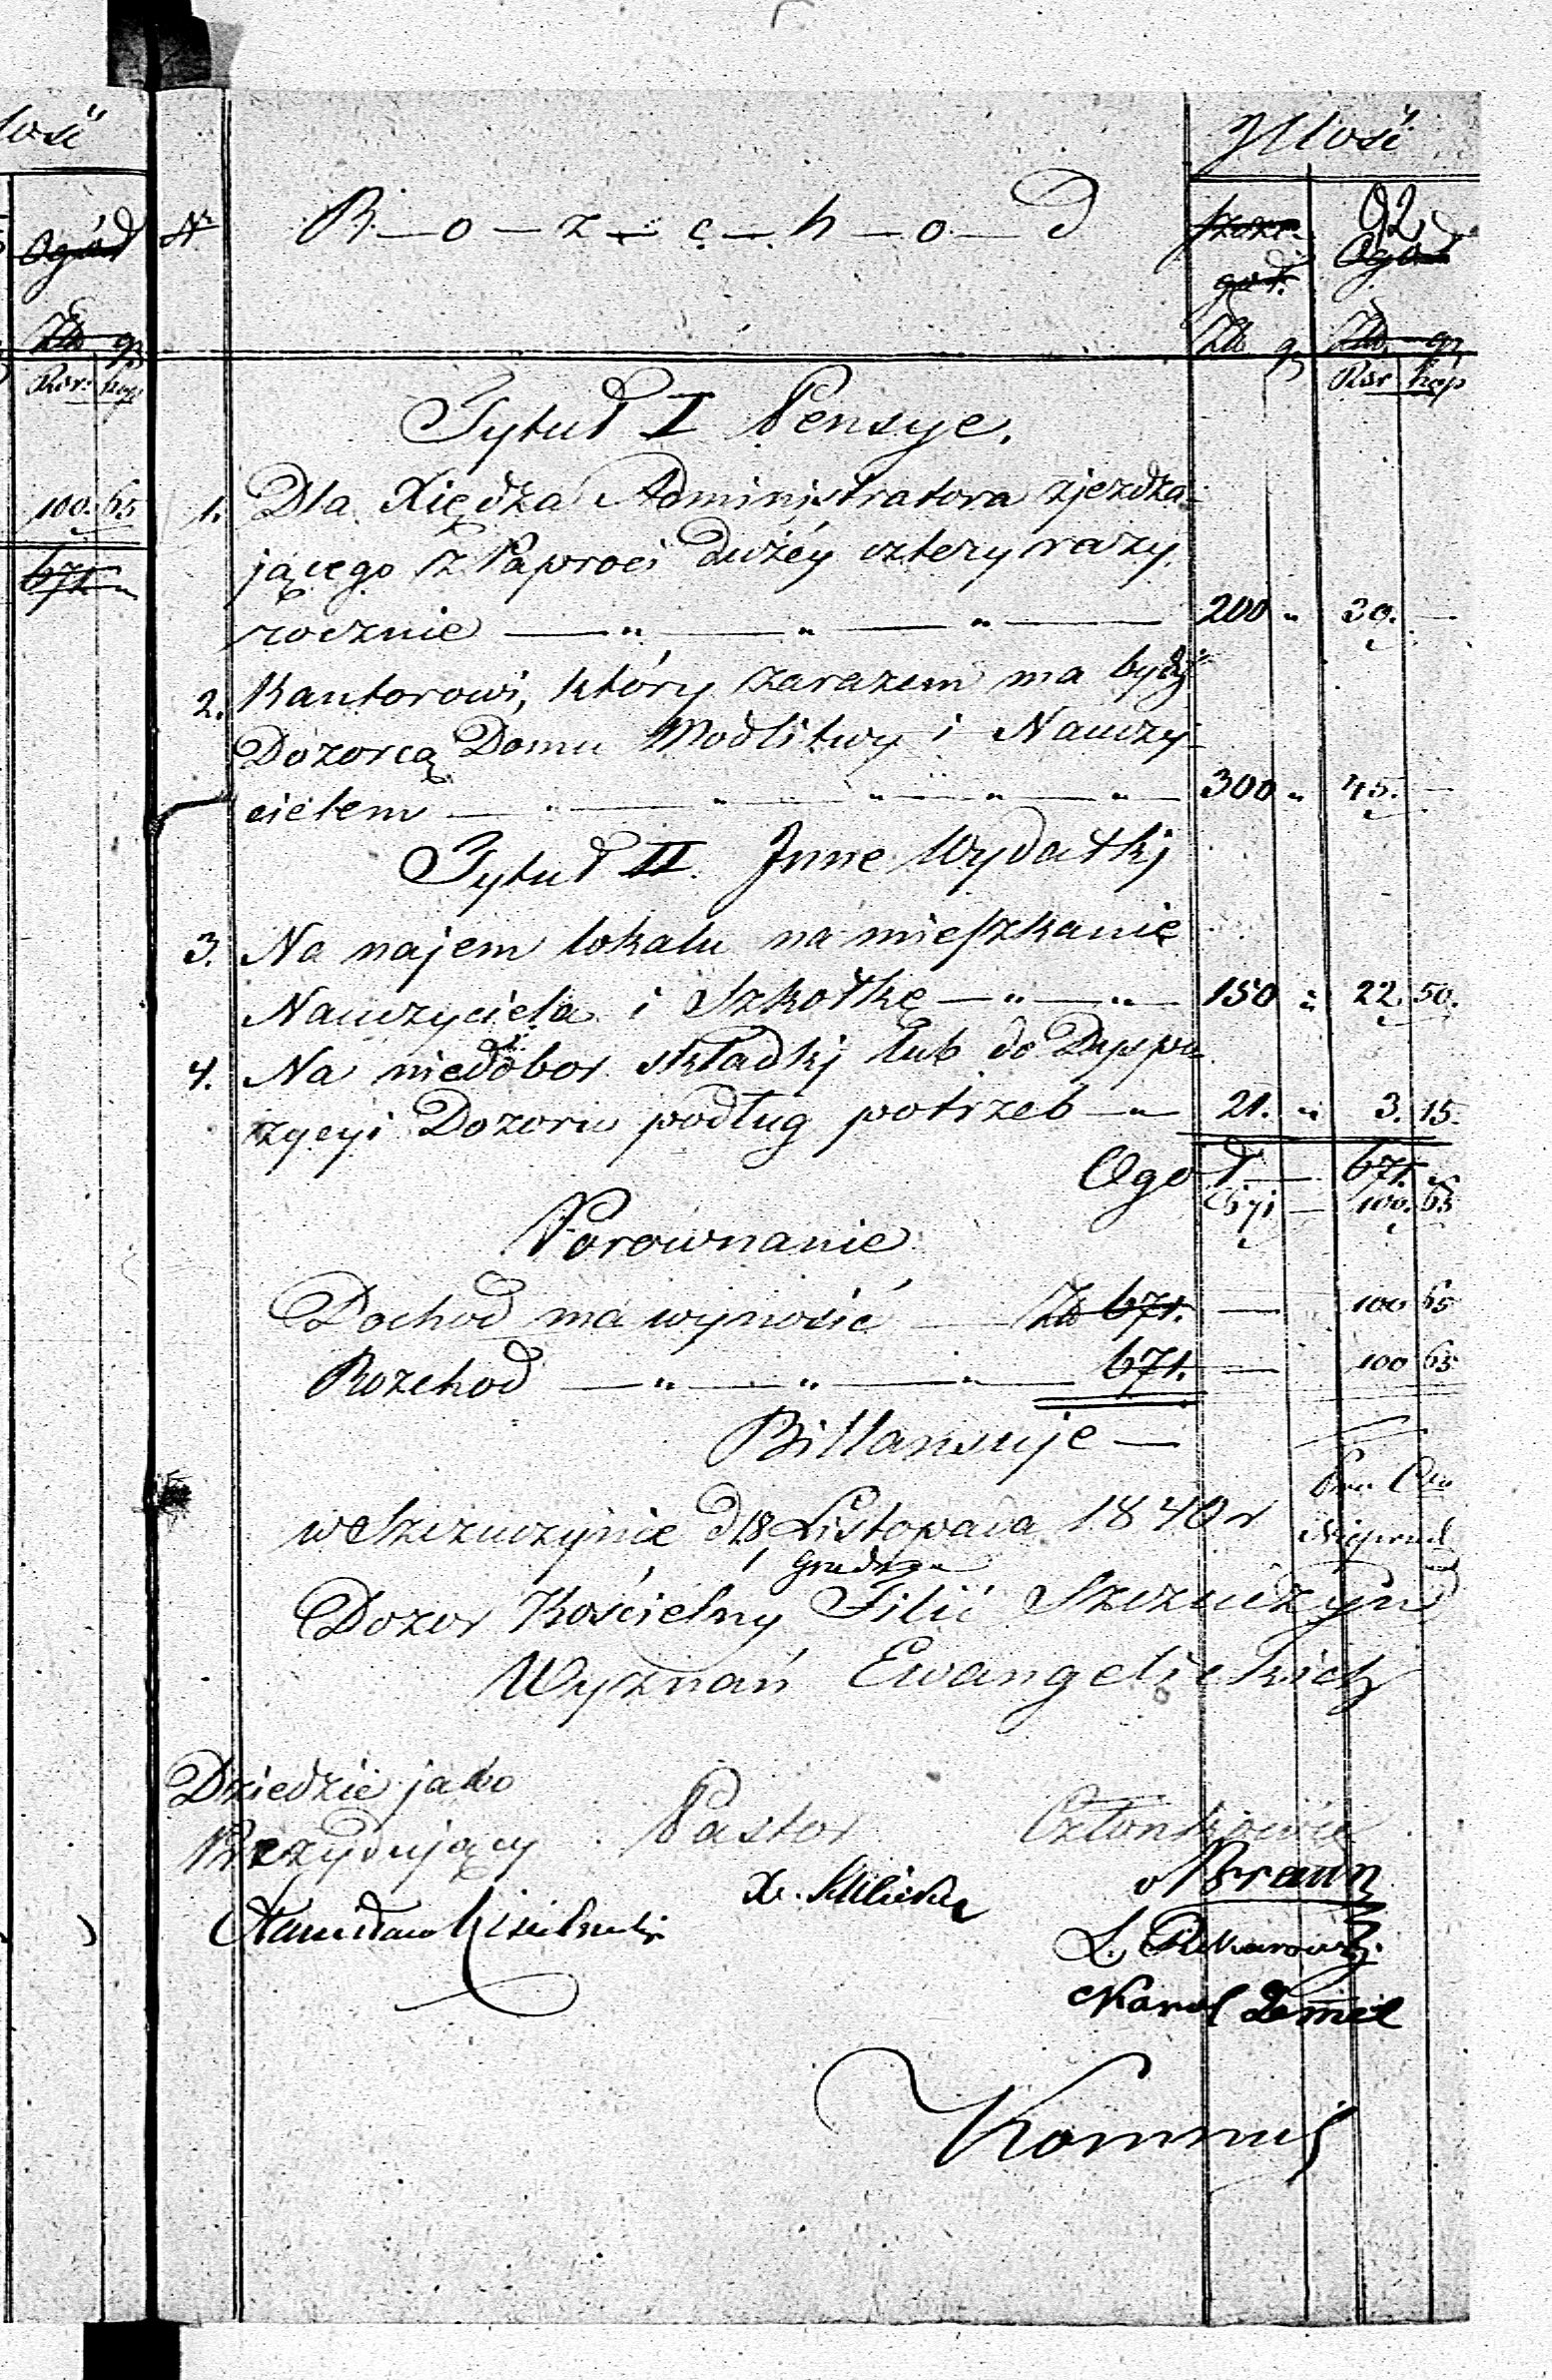 łość
Ogół
Zło gr
Rsr: kop
100. 65
671 "
Jllość
Nr R–o–z–c–h–o–d
szcze-
gół.
92
Ogół
Zło gr Zło. gr
Rsr kop
Tytuł I Pensye.
1. Dla Xiędza Administratora zjeżdża-
jącego z Paproci dużéy cztery razy
rocznie — " — " — " — 200 " 30. —
2. Kantorowi, który zarazem ma bydź
Dozorcą Domu Modlitwy i Nauczy-
cielem — " — " — " — " — " — 300 " 45. —
Tytuł II. Jnne Wydatkj
3. Na najem lokalu na mieszkanie
Nauczyciela i Szkołkę — " — " — 150 " 22. 50.
4. Na niedobor składkj lub do Dyspo-
zycyi Dozoru podług potrzeb — " — 21. " 3. 15.
Ogoł — 671. "
Czyi — 100. 65
Porównanie
Dochod ma wynosić — Zło 671. — 100 65
Rozchod — " — " — " — 671. — 100 65
Billansuje —
w Szczuczynie d 18 Listopada 1840 r
1 Grudnia
Dozor Kościelny Filii Szczuczyn
Wyznań Ewangelickich
Dziedzic jako
Prezydujący Pastor Członkowie
Stanisław Kisielnicki
X. Kulicke
Braun
L. Piekarowski
Karol